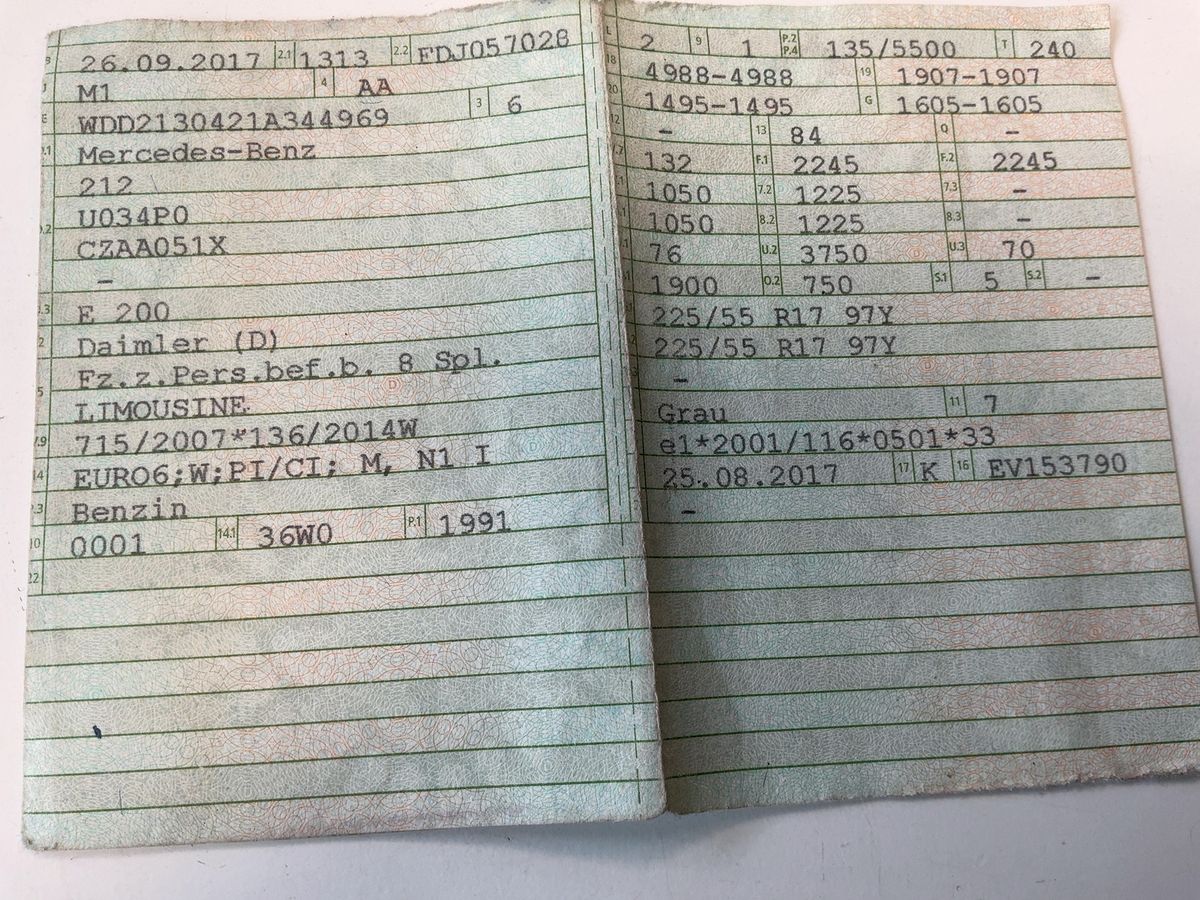 B 26.09.2017 2.1 1313 2.2 FDJ057028
J M1 4 AA
E WDD2130421A344969 3 6
.1 Mercedes-Benz
212
U034P0
.2 CZAA051X
–
.3 E 200
2 Daimler (D)
Fz.z.Pers.bef.b. 8 Spl.
5 LIMOUSINE
V.9 715/2007*136/2014W
14 EURO6;W;PI/CI; M, N1 I
P.3 Benzin
10 0001 14.1 36W0 P.1 1991
22
L 2 9 1 P.2 P.4 135/5500 T 240
18 4988-4988 19 1907-1907
20 1495-1495 G 1605-1605
12 – 13 84 Q –
V.7 132 F.1 2245 F.2 2245
.1 1050 7.2 1225 7.3 –
.1 1050 8.2 1225 8.3 –
.1 76 U.2 3750 U.3 70
.1 1900 O.2 750 S.1 5 S.2 –
225/55 R17 97Y
225/55 R17 97Y
–
Grau 11 7
e1*2001/116*0501*33
25.08.2017 17 K 16 EV153790
–